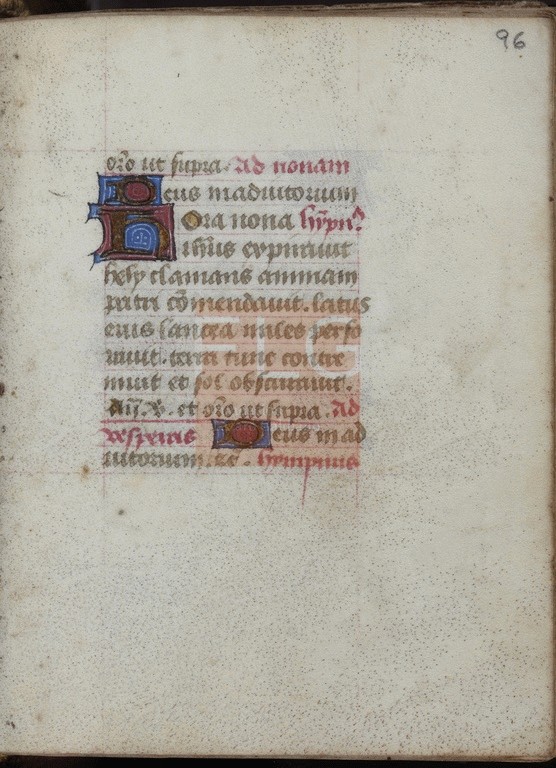 96
oro ut supra. Ad nonam
Deus in adiutorium
Hora nona hỹpnꝰ
ihūs expirauit
hely clamans animam
patri cōmendauit. latus
eius lancea miles perfo
rauit. terra tunc contre
muit et sol obscurauit.
An̄. V̸. et oro ut supra. Ad
vesperas Deus in ad
iutorium. ꝛc. hympnus